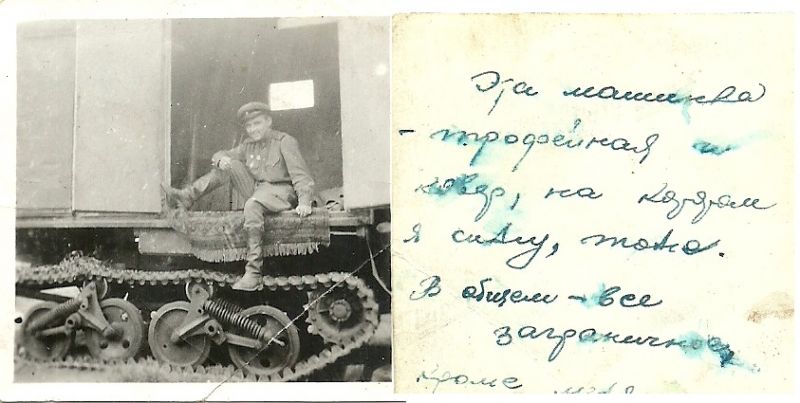 Эта машинка
- трофейная и
ковер, на котором
я сижу, тоже.
В общем - все
заграничное
кроме меня